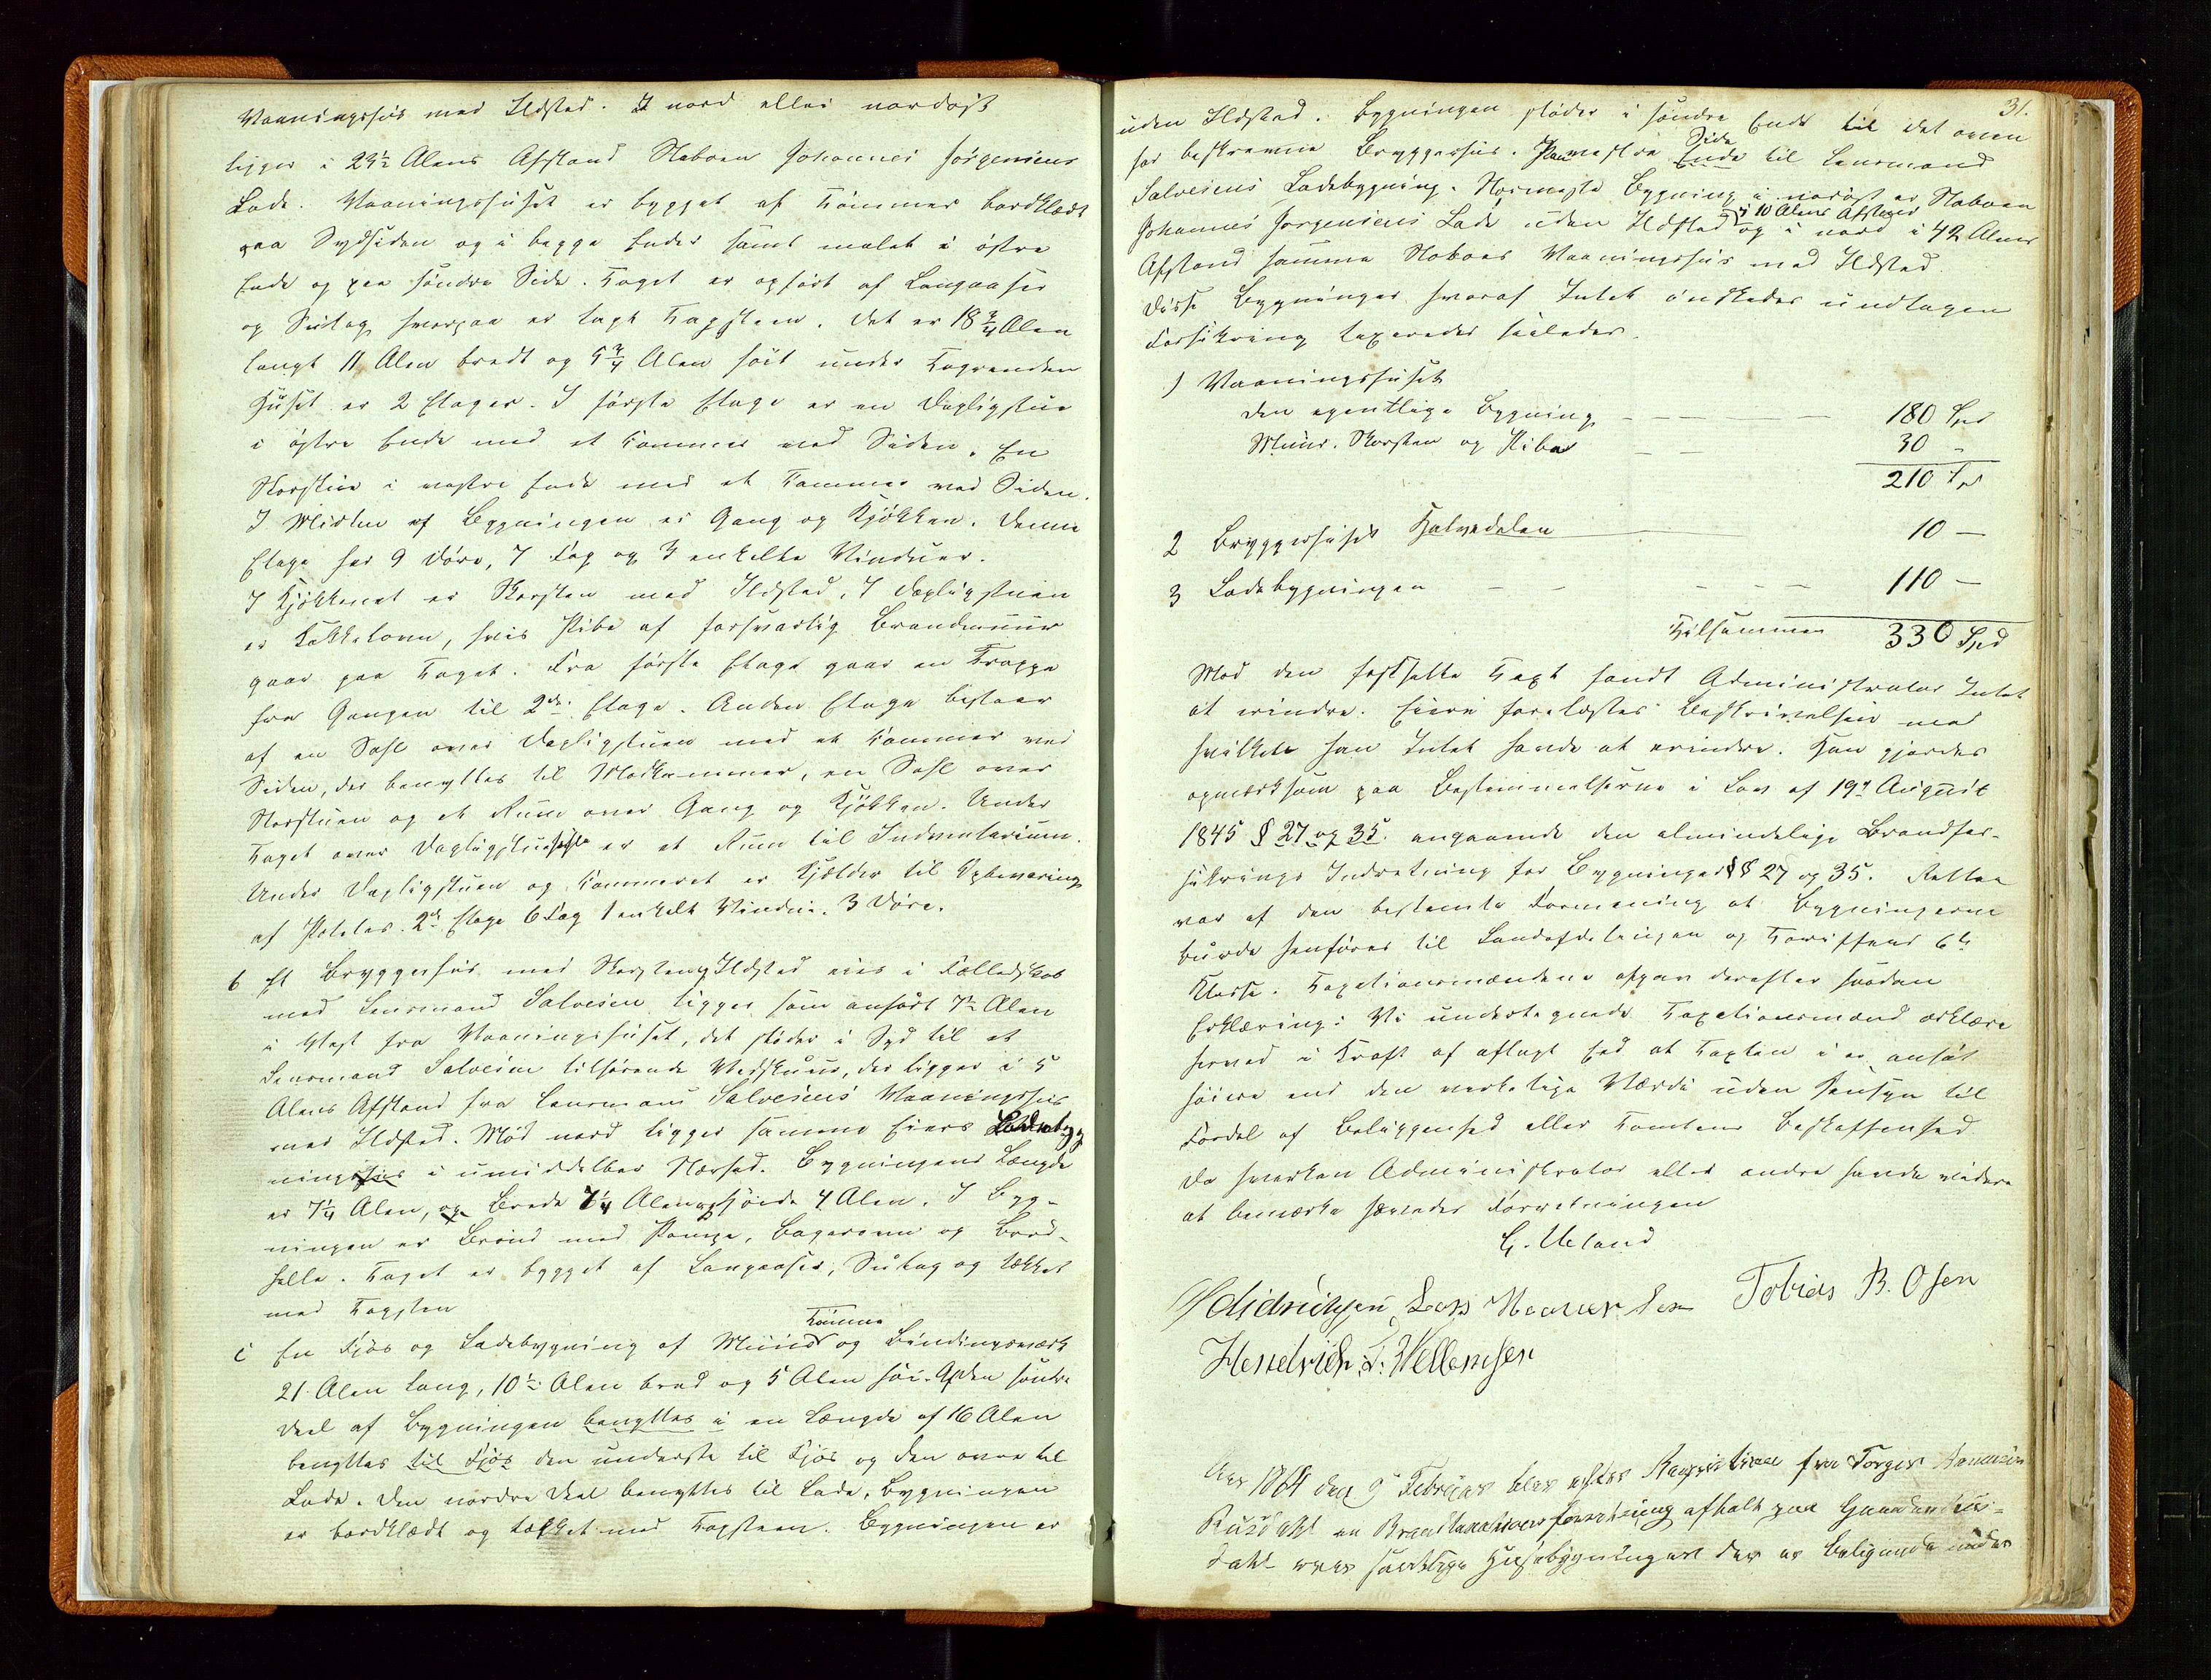 Vaaningshus med Ildsted. I nord eller nordøst
ligger i 23½ Alens Afstand Naboen Johannes Jørgensens
Lade. Vaaningshuset er bygget af Tømmer bordklædt
paa Sydsiden og i begge Ender samt malet i østre
Ende og paa søndre Side. Taget er opført af Langaaser
og Sutag hvorpaa er lagt Tagsteen. Det er 18¾ Alen
langt 11 Alen bredt og 5¾ Alen høit under Tagrenden
Huset er 2 Etager. I første Etage er en Dagligstue
i østre Ende med et Kammer ved Siden. En
Storstue i vestre Ende med et Kammer ved Siden.
I Midten af Bygningen er Gang og Kjøkken. Denne
Etage har 9 Døre, 7 Fag og 3 enkelte Vinduer.
I Kjøkkenet er Skorsten med Ildsted, I Dagligstuen
er Kakkelovn, hvis Pibe af forsvarlig Brandmuur
gaar paa Taget. Fra første Etage gaar en Trappe
fra Gangen til 2den Etage. Anden Etage bestaar
af en Sahl over Dagligstuen med et Kammer ved
Siden, der benyttes til Madkammer, en Sahl over
Storstuen og et Rum over Gang og Kjøkken. Under
Taget over Dagligstue er et Rum til Indventarium.
Under Dagligstuen og Kammeret er Kjælder til Opbevaring
af Poteter. 2den Etage 6 Fag 1 enkelt Vindue. 3 Døre.
b Et Bryggerhus med Skorsten og Ildsted eies i Fælledskab
med Lensmand Salvesen ligger som anført 7½ Alen
i Vest fra Vaaningshuset, det støder i Syd til et
Lensmand Salvesen tilhørende Vedskuur, der ligger i 5
Alens Afstand fra Lensmand Salvesens Vaaningshus
med Ildsted. Mod nord ligger samme Eiers Ladebyg
ning i umiddelbar Nærhed. Bygningens Længde
er 7¼ Alen, og Brede 7¼ Alen og Høide 4 Alen. I Byg-
ningen er Brønd med Pompe, Bagerovn og Brød-
helle. Taget er bygget af Langaaser, Sutag og tækket
med Tagsten
Tømmer
c En Fjøs og Ladebygning af Muur og Bindingsværk
21 Alen lang, 10½ Alen bred og 5 Alen høi. Af den søndre
Deel af Bygningen benyttes i en Længde af 16 Alen
benyttes til Fjøs den underste til Fjøs og den øvre til
Lade. Den nordre Deel benyttes til Lade, Bygningen
er bordklædt og tækket med Tagsteen. Bygningen er
31.
uden Ildsted. Bygningen støder i søndre Ende til det oven
Side
for beskrevne Bryggerhus. Paa vestre Ende til Lensmand
Salvesens Ladebygning. Nærmeste Bygning i nordøst er Naboen
i 10 Alens Afstand
Johannes Jørgensens Lade uden Ildsted og i nord i 42 Alens
Afstand samme Naboes Vaaningshus med Ildsted.
Disse Bygninger hvoraf Intet ønskedes undtagen
Forsikring taxeredes saaledes.
1) Vaaningshuset
den egentlige Bygning 180 Spd
Muur. Skorsten og Pibe 30 -
210 Spd
2 Bryggerhuset Halvedelen 10 -
3 Ladebygningen 110 -
Tilsammen 330 Spd
Mod den fastsatte Taxt fandt Administrator Intet
at erindre. Eieren forelæstes Beskrivelsen mod
hvilken han Intet havde at erindre. Han gjordes
opmærksom paa Bestemmelserne i Lov af 19de August
1845 § 27 og 35. angaaende den almindelige Brandfor-
sikrings Indretning for Bygninger §§ 27 og 35. Retten
var af den bestemte Formening at Bygningerne
burde henføres til Landafdelingen og Tariffens 6te
Klasse. Taxationsmændene afgav derefter saadan
Erklæring: Vi undertegnede Taxationsmænd erklære
herved i Kraft af aflagt Eed at Taxten ei er ansat
høiere end den verkelige Værdi uden Hensyn til
Fordel af Beliggenhed eller Tomtens Beskaffenhed
Da hverken Administrator eller andre havde videre
at bemærke hævedes Forretningen
G. Ueland
Lars Tobias B. Osen
Hendrich T. Wellemsen
Aar 1864 den 9 Februar blev efter Requisition fra Torger
Rusdahl en Brandtaxationsforretning afholdt paa Gaarden Rus-
dahl over samtlige Husebygninger der er beliggende under